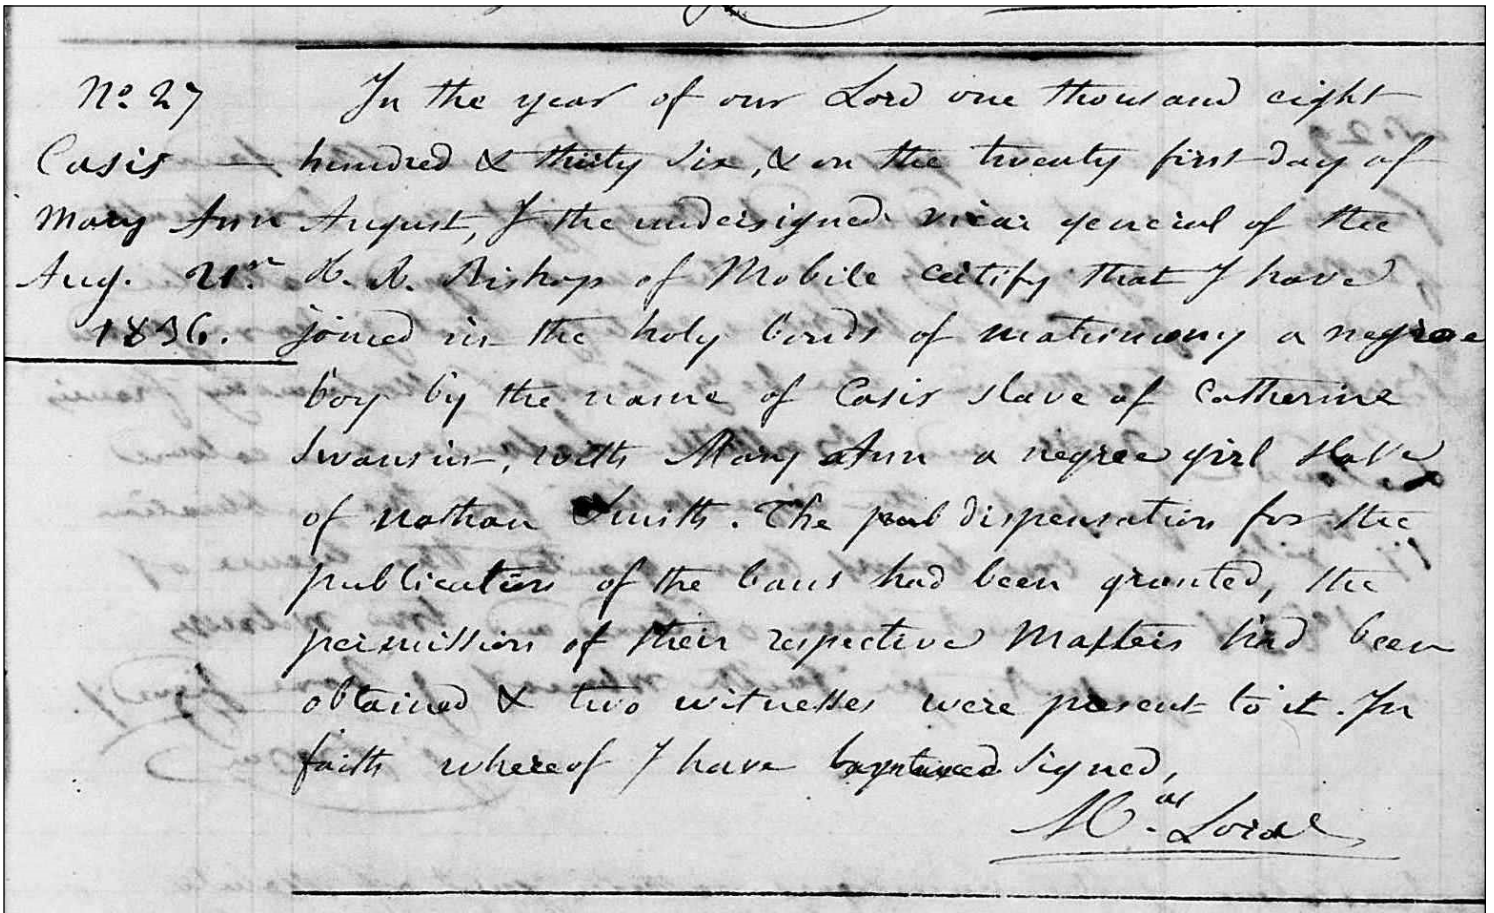 No. 27
Casis —
Mary Ann
Aug. 21st
1836.
In the year of our Lord one thousand eight
hundred & thirty six, & on the twenty first day of
August, I the undersigned vicar general of the
R. R. Bishop of Mobile certify that I have
joined in the holy bonds of matrimony a negree
boy by the name of Casis slave of Catherine
Swansin, with Mary Ann a negree girl slave
of Nathan Smith. The dispensation for the
publication of the bans had been granted, the
permission of their respective Masters had been
obtained & two witnesses were present to it. In
faith whereof I have signed,